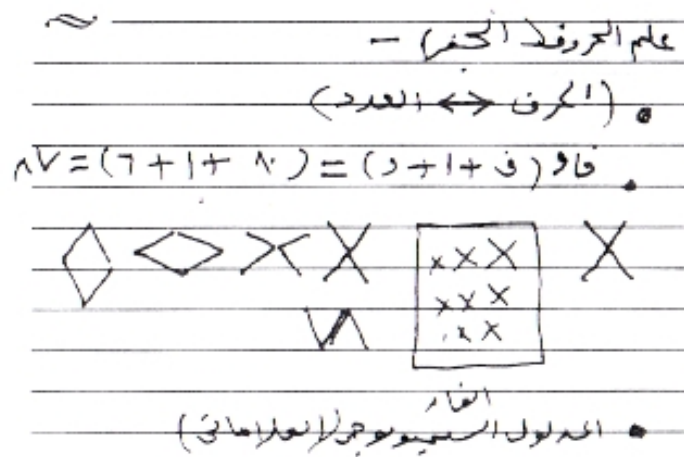 علم الحروف (الجفر) -
• (الحرف ↔ العدد)
• فاو (ف + ا + و) = (٨٠ + ١ + ٦) = ٨٧
X X X X
X X X
X X
٧٨
الفار
• المدلول السيميولوجي (العلاماتي)